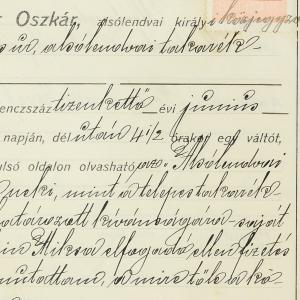 Oszkár, alsólendvai királyi közjegyző
úr, alsólendvai takarék-
enczszáz tizenkettő évi június
napján, dél után 4 1/2 órakor egy váltót,
ulsó oldalon olvasható az Alsólendvai
mint a telepes takarék-
határozott kívánságára saját
Miksa elfogadó ellen fizetés
mutattam, a mire tőle a kö-